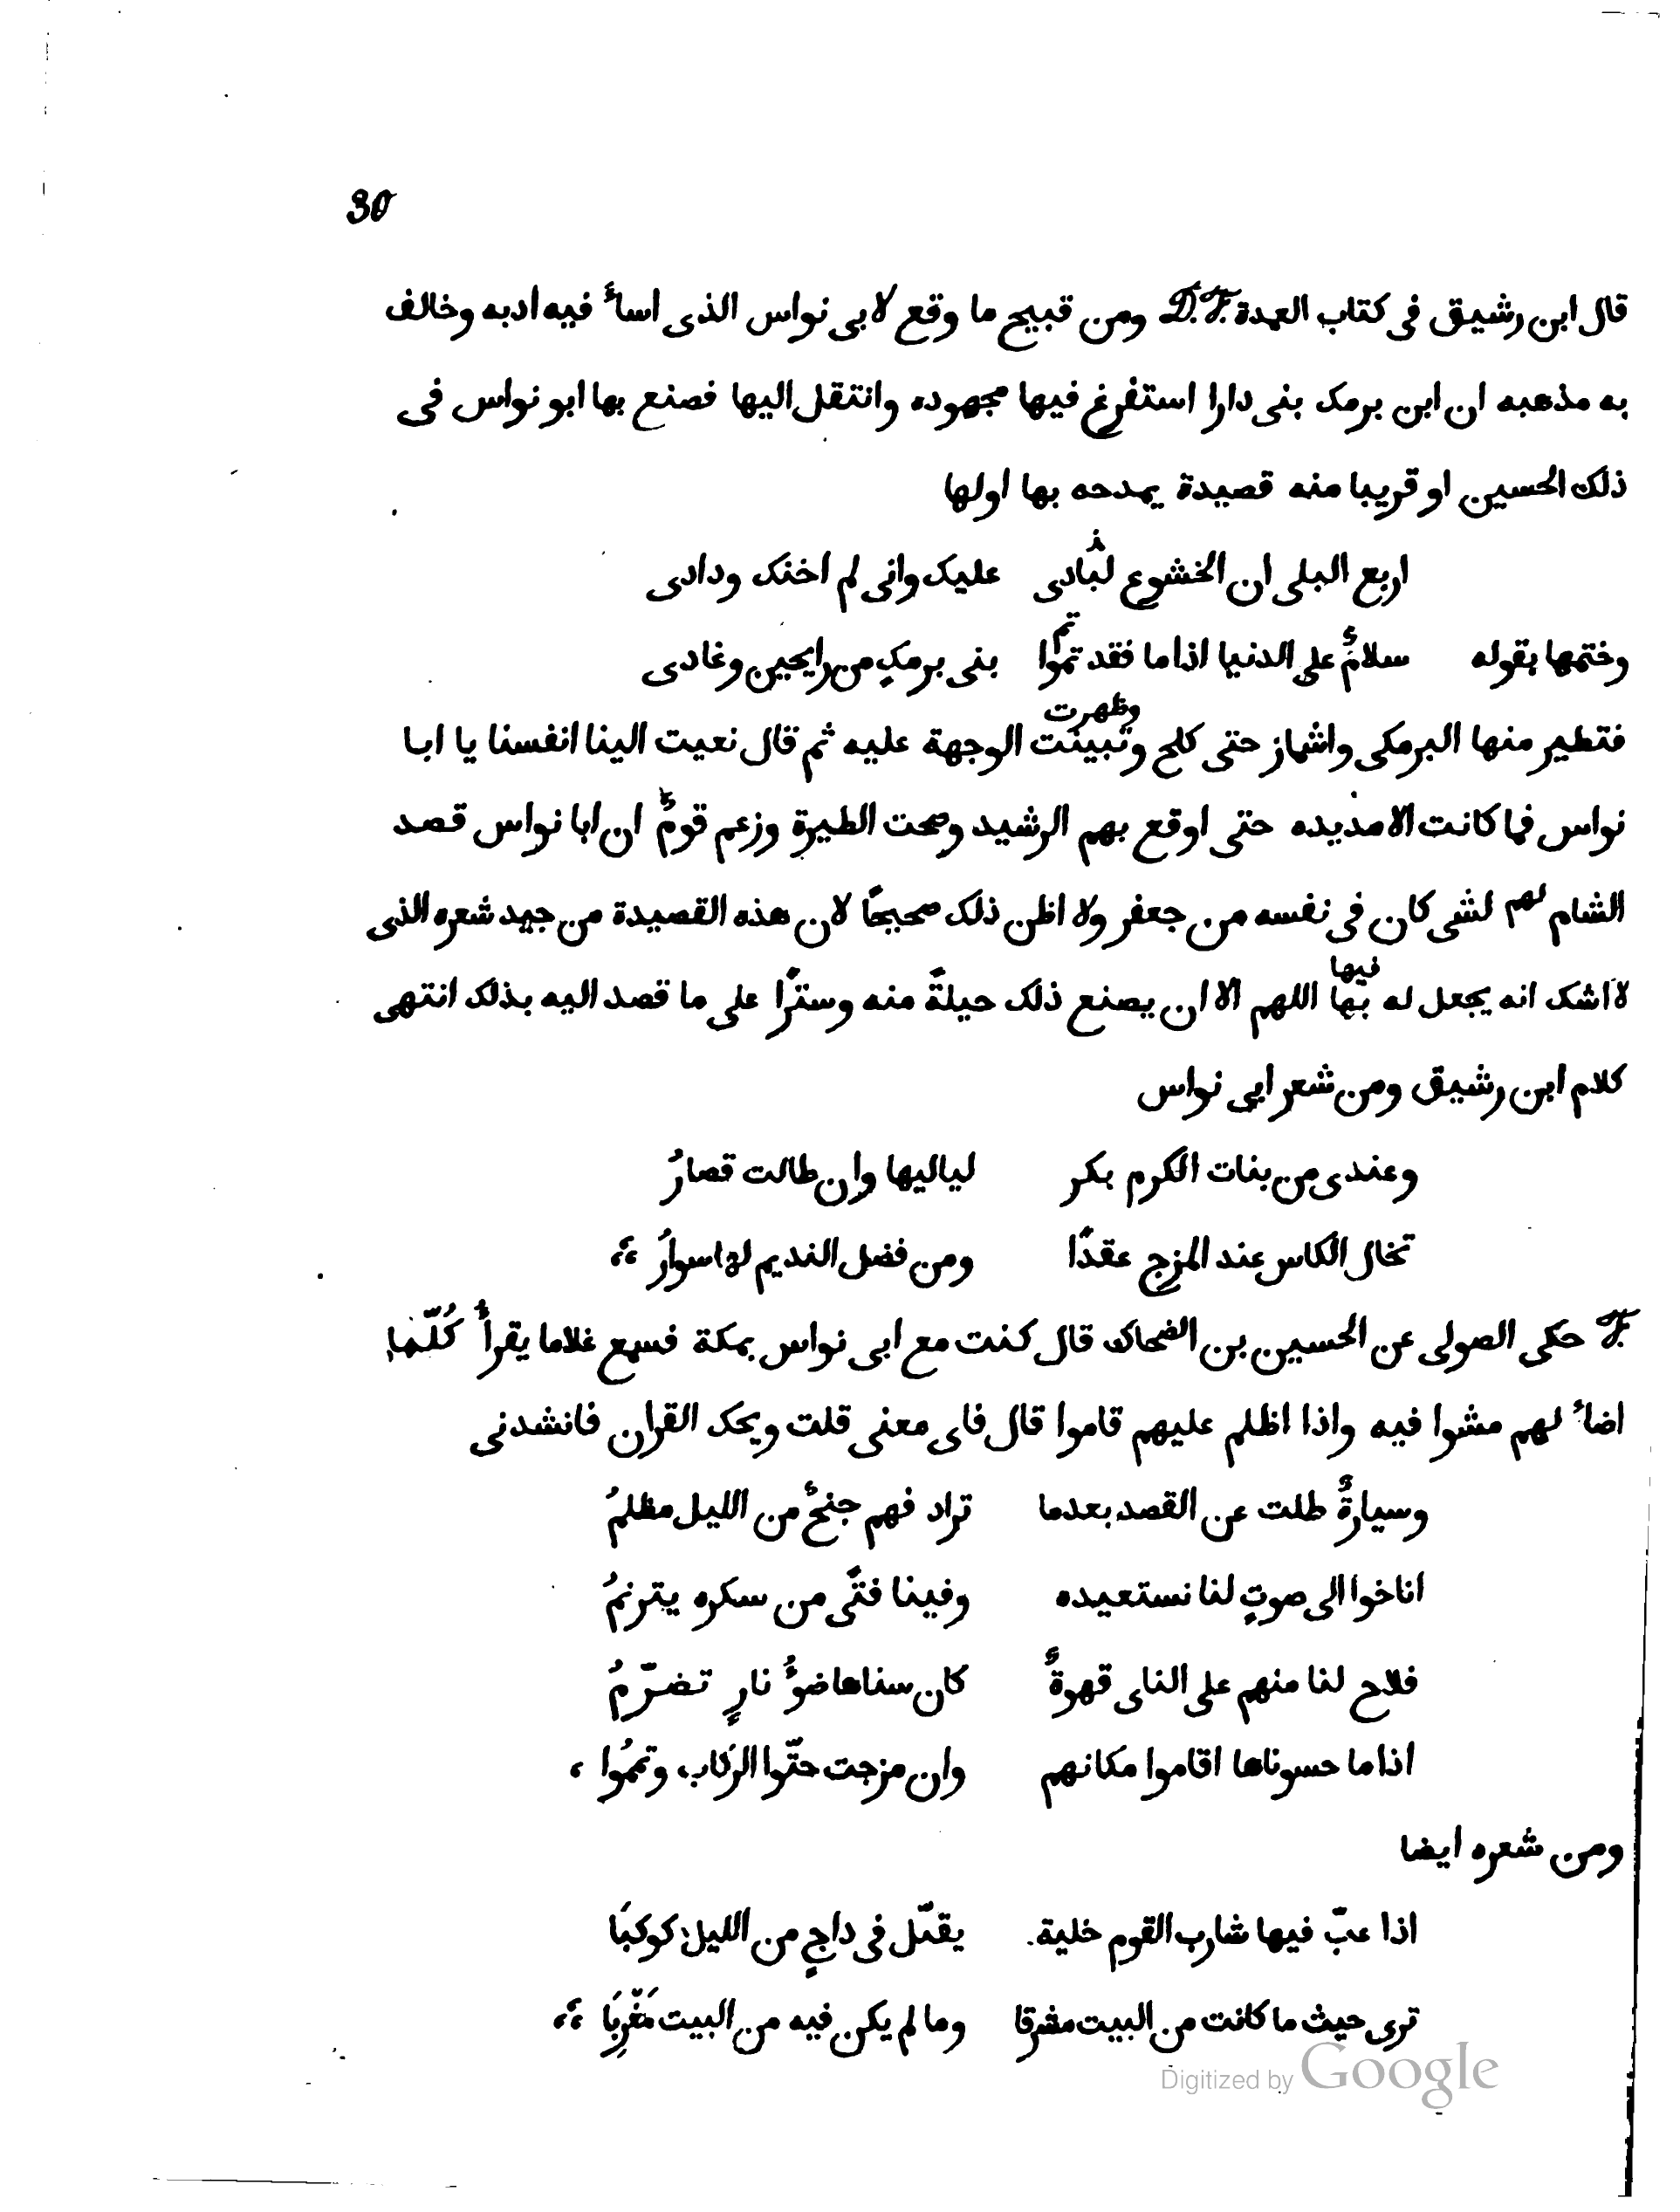 30
قال ابن رشيق فى كتاب العمدة D.F. ومن قبيح ما وقع لابى نواس الذى اساءٔ فيه ادبه وخالف
به مذهبه ان ابن برمك بنى دارا استفرغ فيها مجهوده وانتقل اليها فصنع بها ابو نواس فى
ذلك الحسين او قريبا منه قصيدة يمدحه بها اولها
اربع البلى ان الخشوع لبادى عليك وانى لم اخنك ودادى
وختمها بقوله سلامٌ على الدنيا اذا ما فقد تموا بنى برمكٍ من رايحين وغادى
وظهرت
فتطير منها البرمكى واشماز حتى كلح وتبينت الوجهة عليه ثم قال نعيت الينا انفسنا يا ابا
نواس فما كانت الا مديده حتى اوقع بهم الرشيد وصحت الطيرة وزعم قومٌ ان ابا نواس قصد
الشام لهم لشى كان فى نفسه من جعفر ولا اظن ذلك صحيحًا لان هذه القصيدة من جيد شعره الذى
فيها
لا اشك انه يجعل له بها اللهم الا ان يصنع ذلك حيلةً منه وسترًا على ما قصد اليه بذلك انتهى
كلام ابن رشيق ومن شعر ابى نواس
وعندى من بنات الكرم بكر لياليها وان طالت قصارُ
تخال الكاس عند المزج عقدًا ومن فضل النديم لها سوارُ
F. حكى الصولى عن الحسين بن الضحاك قال كنت مع ابى نواس بمكة فسمع غلاما يقرأ كُلّما
اضاءٔ لهم مشوا فيه واذا اظلم عليهم قاموا قال فاى معنى قلت ويحك القران فانشدنى
وسيارةٌ طلت عن القصد بعدما تراد فهم جنحٌ من الليل مظلمُ
اناخوا الى صوتٍ لنا نستعيده وفينا فتًى من سكره يترنمُ
فلاح لنا منهم على الناى قهوةٌ كان سناها ضوٴُ نارٍ تضرّمُ
اذا ما حسوناها اقاموا مكانهم وان مزجت حثّوا الركاب وتمّوا ،
ومن شعره ايضا
اذا عبّ فيها شارب القوم خلية يقبّل فى داجٍ من الليل كوكبَا
ترى حيث ما كانت من البيت مشرقا وما لم يكن فيه من البيت مَغْرِبَا
Digitized by Google